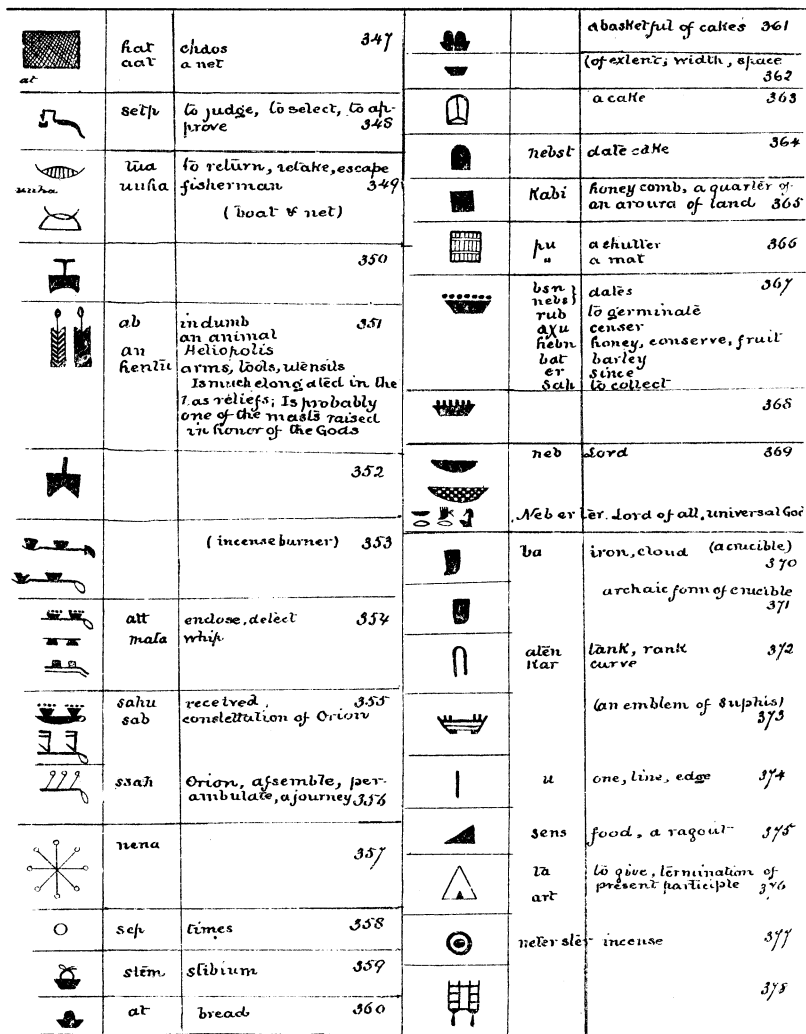 at
hat chaos 347
aat a net
setp to judge, to select, to ap-
prove 348
tua to return, retake, escape
uuha uuha fisherman 349
(boat & net)
350
ab indumb 351
an animal
an Heliopolis
hentu arms, tools, utensils
Is much elongated in the
bas reliefs; Is probably
one of the masts raised
in honor of the Gods
352
(incense burner) 353
att enclose, delect 354
mata whip
sahu received, 355
sab constellation of Orion
ssah Orion, assemble, per-
ambulate, a journey 356
nena 357
sep times 358
stem stibium 359
at bread 360
a basketful of cakes 361
(of extent; width, space
362
a cake 363
nebst date cake 364
Kabi honey comb, a quarter of
an aroura of land 365
pu a shutter 366
" a mat
bsn } dates 367
nebs}
rub to germinate
axu censer
hebn honey, conserve, fruit
bat barley
er since
sah to collect
368
neb Lord 369
Neb er ter. Lord of all, universal God
ba iron, cloud (a crucible)
370
archaic form of crucible
371
aten tank, rank 372
Kar curve
(an emblem of Suphis)
373
u one, line, edge 374
sens food, a ragout 375
ta to give, termination of
art present participle 376
neter ster incense 377
378